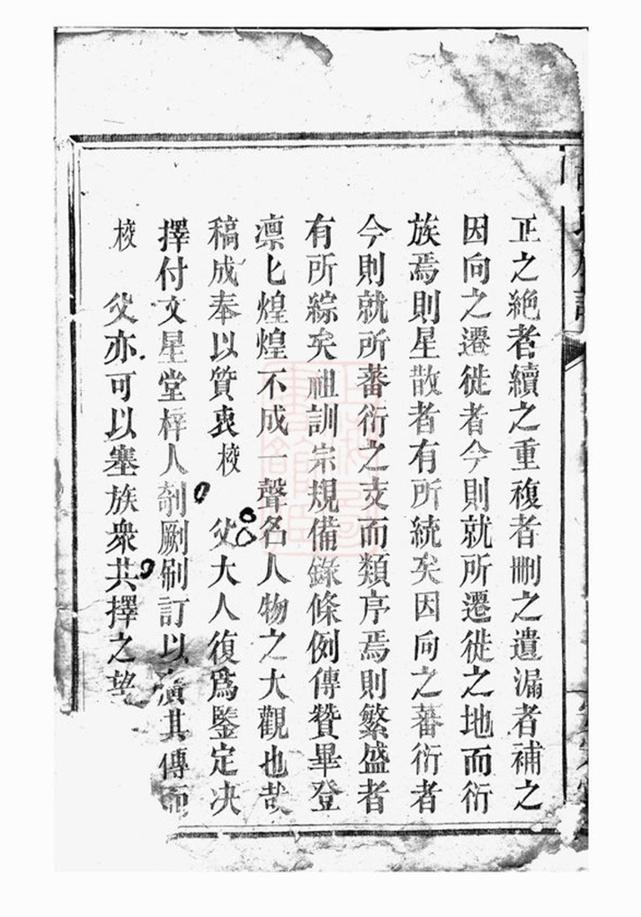 正之絶者續之重複者刪之遺漏者補之
因向之遷徙者今則就所遷徙之地而衍
族焉則星散者有所統矣因向之蕃衍者
今則就所蕃衍之支而類序焉則繁盛者
有所綜矣祖訓宗規備錄條例傳贊畢登
凛匕煌煌不成一聲名人物之大觀也哉
稿成奉以質衷校 父大人復爲鑒定决
擇付文星堂梓人剞劂刷訂以廣其傳而
校 父亦可以塞族衆共擇之望